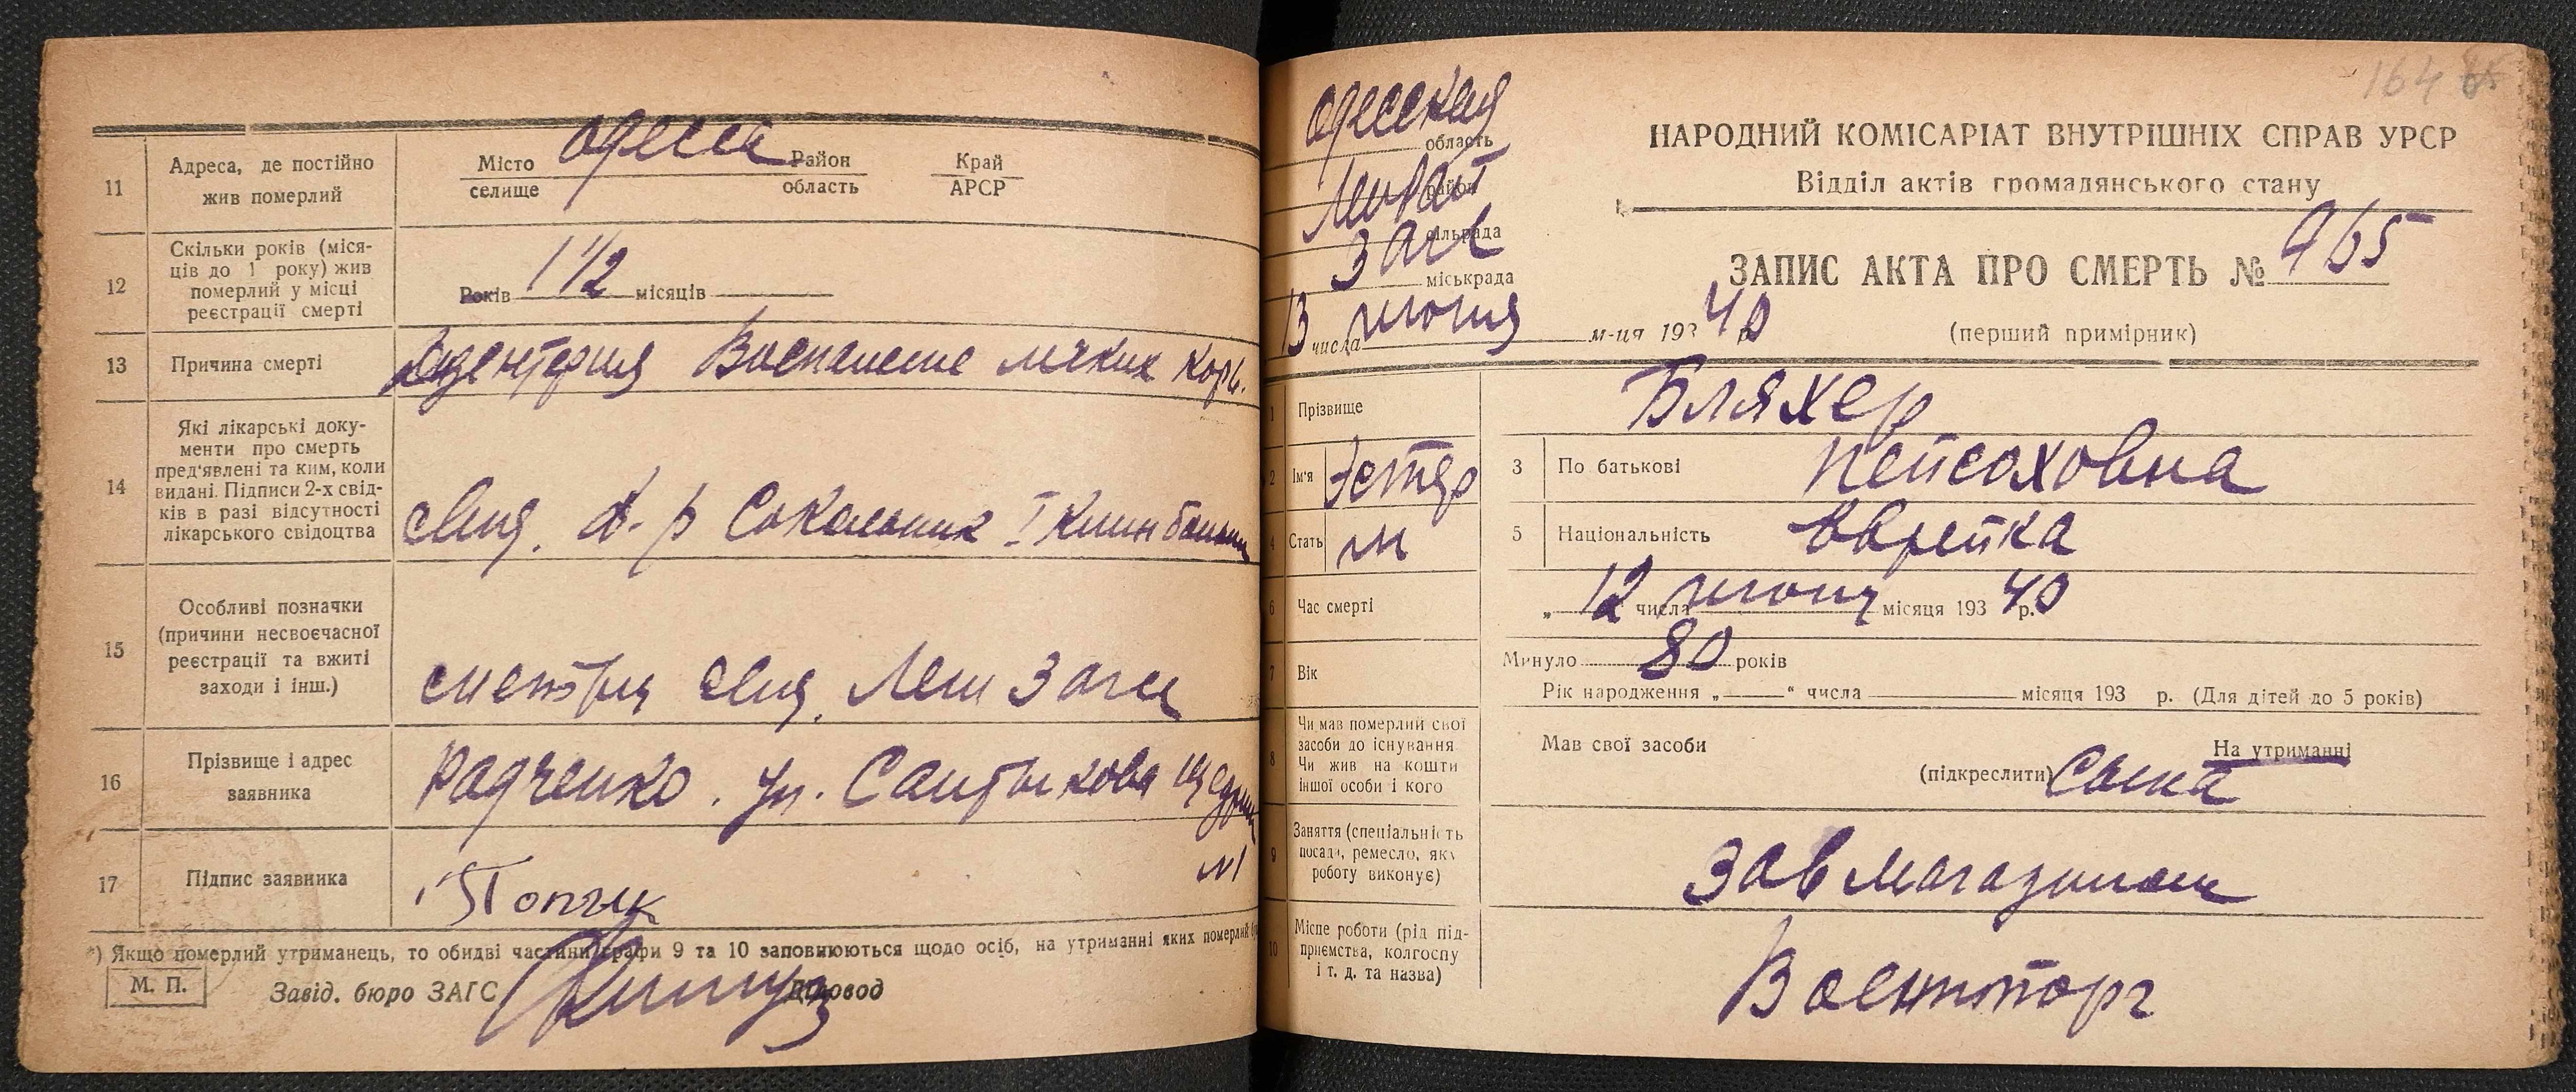 11
Адреса, де постійно
жив померлий
Місто Одесса Район Край
селище область АРСР
12
Скільки років (міся-
ців до 1 року) жив
померлий у місці
реєстрації смерті
Років 1 1/2 місяців
13
Причина смерті
Дизентерия Воспаление легких
14
Які лікарські доку-
менти про смерть
пред'явлені та ким, коли
видані. Підписи 2-х свід-
ків в разі відсутності
лікарського свідоцтва
д-р I Клин
15
Особливі позначки
(причини несвоєчасної
реєстрації та вжиті
заходи і інш.)
Лен Загс
16
Прізвище і адрес
заявника
Радченко. ул. Салтыкова Щедрин
17
Підпис заявника
*) Якщо померлий утриманець, то обидві частини графи 9 та 10 заповнюються щодо осіб, на утриманні яких померлий
М. П.
Завід. бюро ЗАГС Діловод
164
Одесская
область
район
Загс
сільрада
міськрада
13 числа июня м-ця 193 40 р.
НАРОДНИЙ КОМІСАРІАТ ВНУТРІШНІХ СПРАВ УРСР
Відділ актів громадянського стану
ЗАПИС АКТА ПРО СМЕРТЬ № 965
(перший примірник)
1 Прізвище Бляхер
2 Ім'я Эстер 3 По батькові Пейсаховна
4 Стать 5 Національність Еврейка
6 Час смерті „ 12 числа июня місяця 193 40 р.
7 Вік
Минуло 80 років
Рік народження „ “ числа місяця 193 р. (Для дітей до 5 років)
8
Чи мав померлий свої
засоби до існування
Чи жив на кошти
іншої особи і кого
Мав свої засоби На утриманні
(підкреслити) Сына
9
Заняття (спеціальність
посада, ремесло, яку
роботу виконує)
Зав магазином
10
Місце роботи (рід під-
приємства, колгоспу
і т. д. та назва)
Военторг